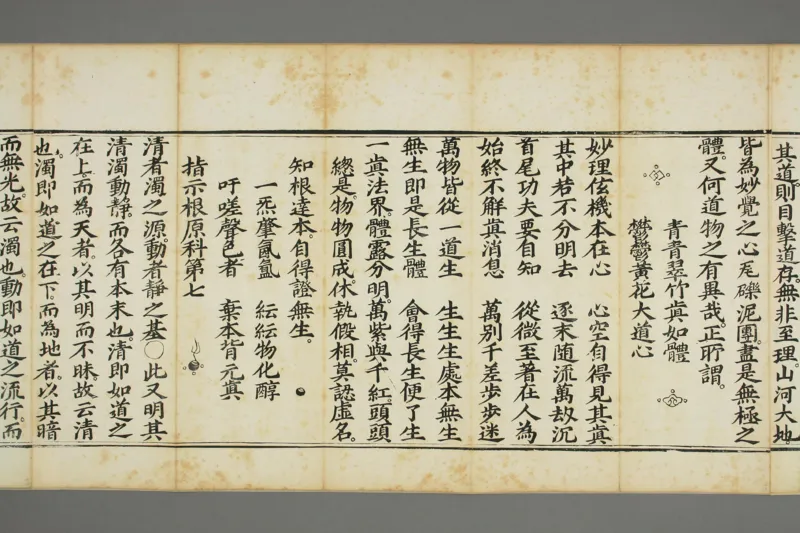 其道則目擊道存無非至理山河大地
皆為妙覺之心瓦礫泥團盡是無極之
體又何道物之有異哉正所謂
青青翠竹眞如體
鬱鬱黃花大道心
妙理玄機本在心　心空自得見其眞
其中若不分明去　逐末随流萬劫沉
首尾功夫要自知　從微至著在人為
始終不解眞消息　萬別千差步步迷
萬物皆從一道生　生生生處本無生
無生即是長生體　會得長生便了生
一眞法界體露分明萬紫與千紅頭頭
總是物物圓成休執假相莫認虛名
知根達本自得證無生
一炁肇氤氳　紜紜物化醇
吁嗟聲色者　棄本背元眞
指示根原科第七
清者濁之源動者靜之基〇此又明其
清濁動靜而各有本末也清即如道之
在上而為天者以其明而不昧故云清
也濁即如道之在下而為地者以其暗
而無光故云濁也動即如道之流行而